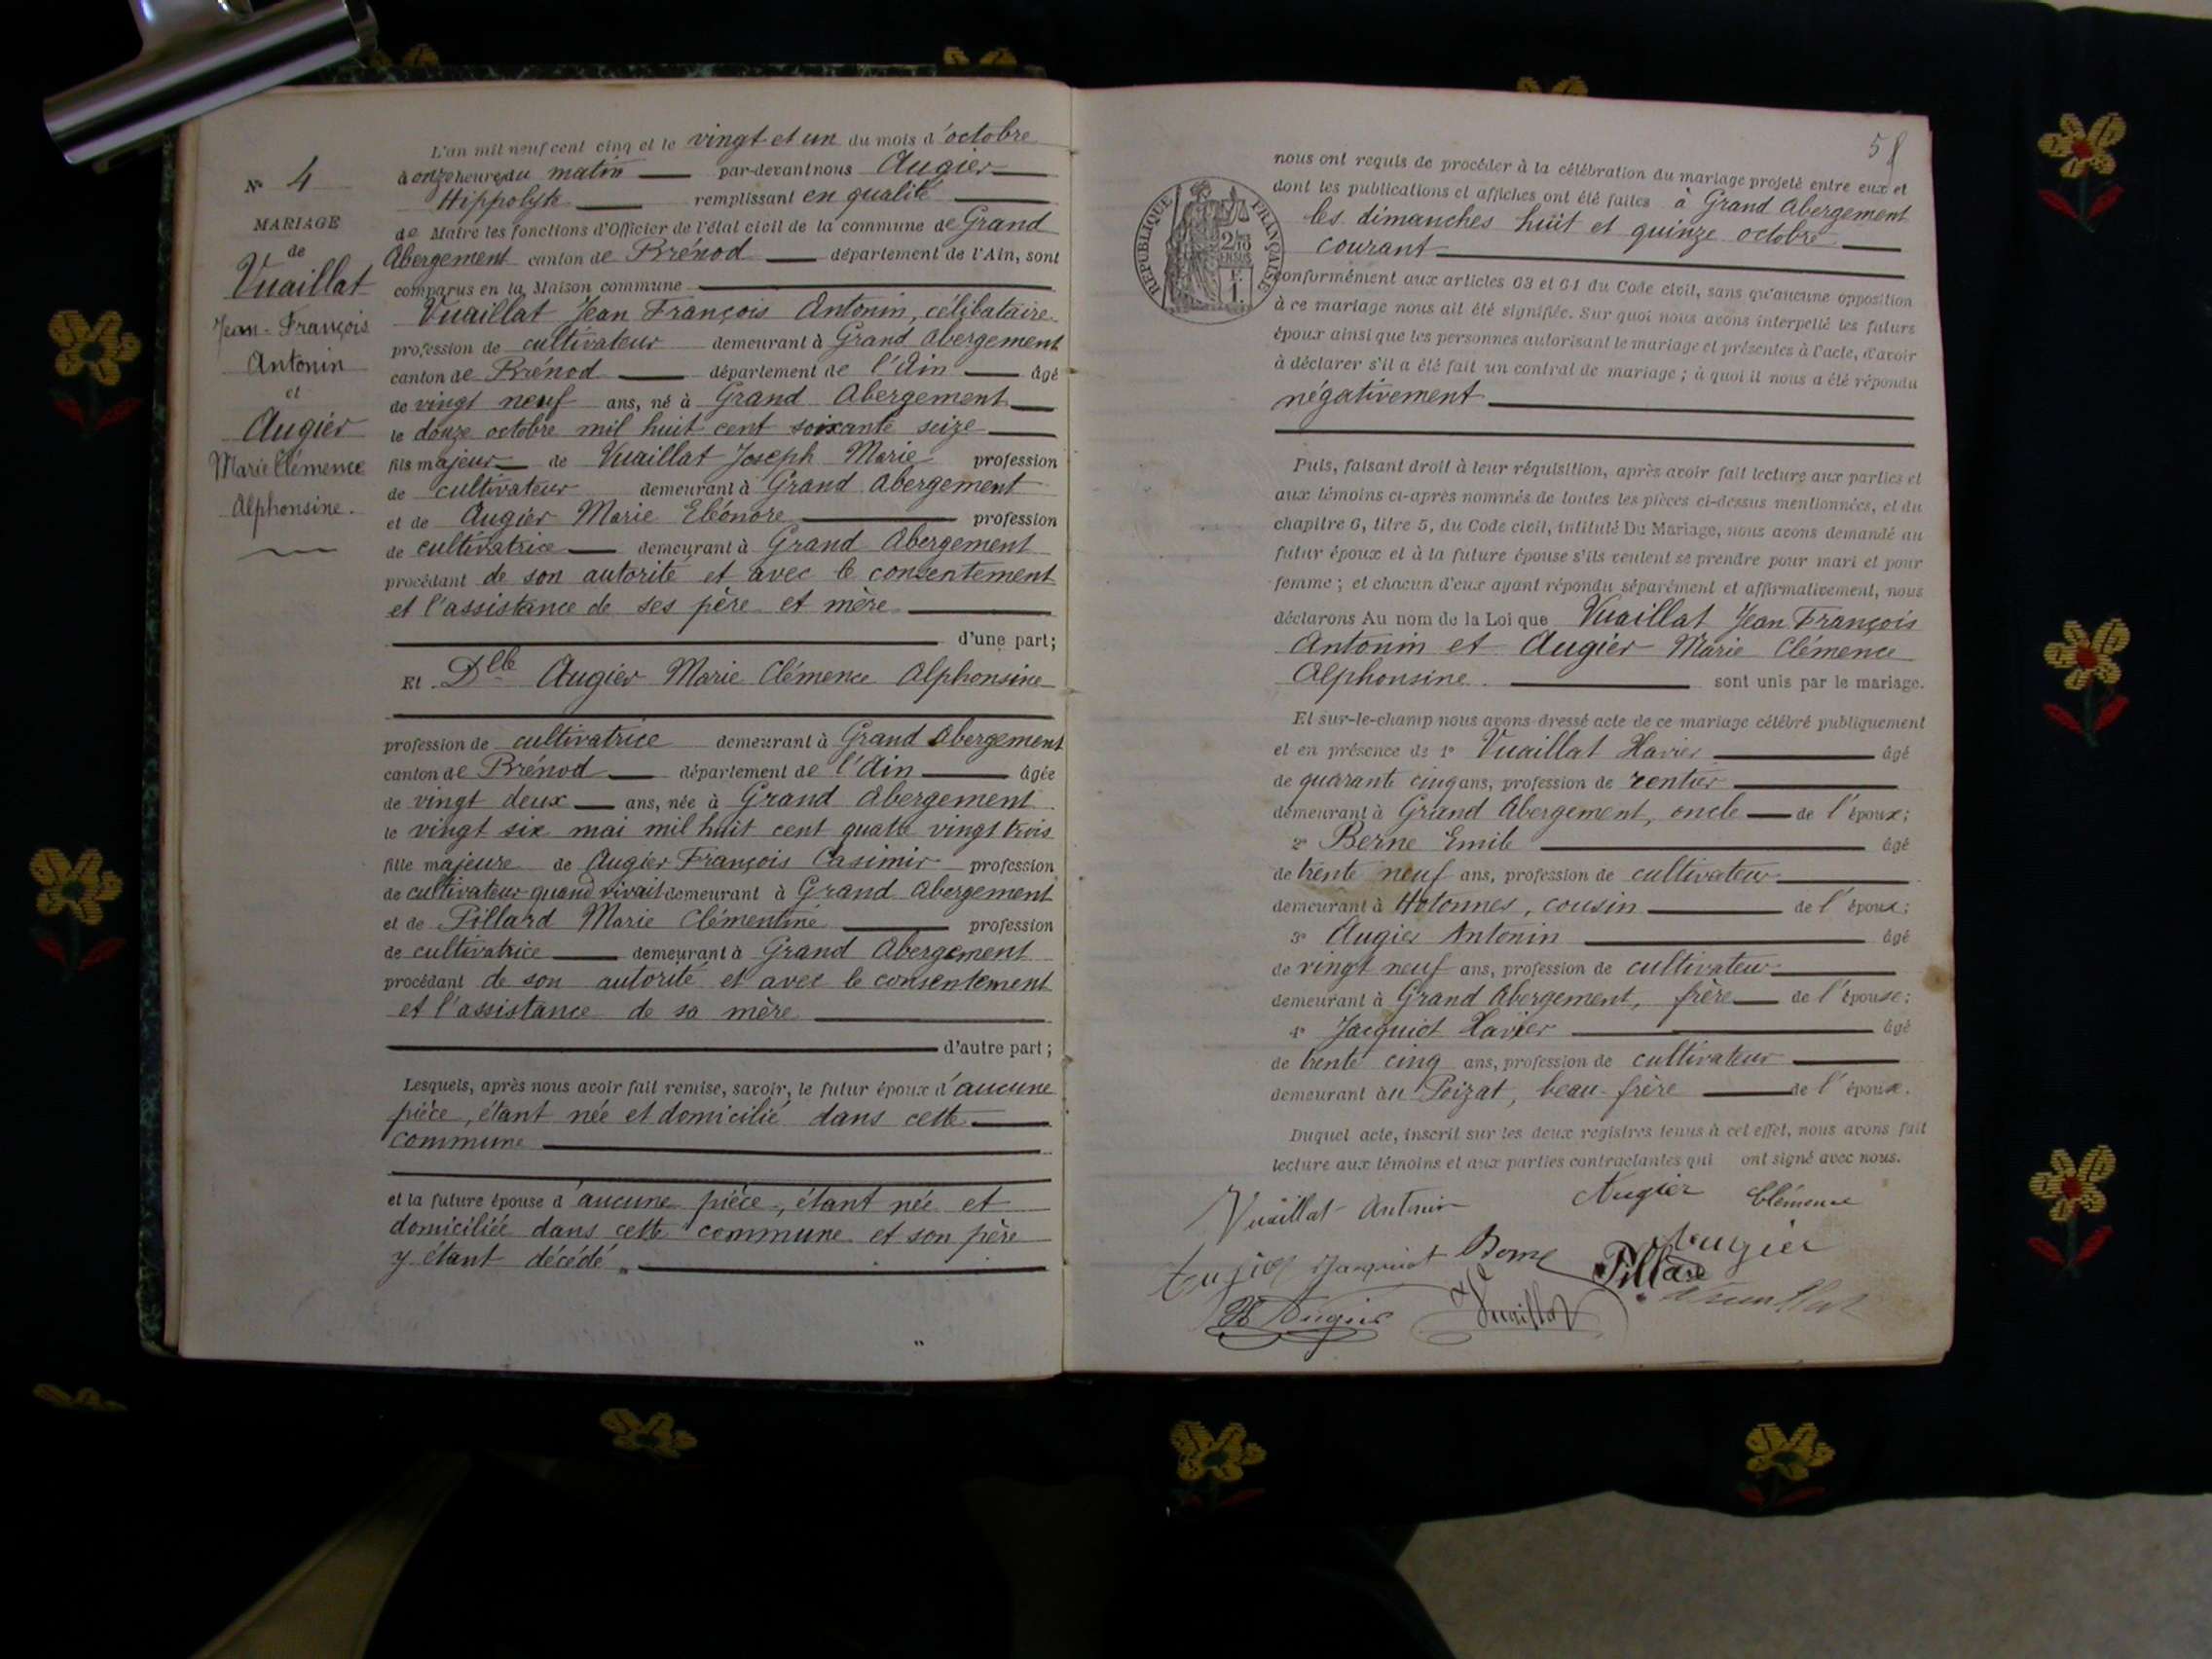 N° 4
MARIAGE
de
Vuaillat
Jean-François
Antonin
et
Augier
Marie Clémence
Alphonsine.
L'an mil neuf cent cinq et le vingt et un du mois d'octobre
à onze heures du matin par-devant nous Augier
Hippolyte remplissant en qualité
de Maire les fonctions d'Officier de l'état civil de la commune de Grand
Abergement canton de Brénod département de l'Ain, sont
comparus en la Maison commune
Vuaillat Jean François Antonin, célibataire
profession de cultivateur demeurant à Grand Abergement
canton de Brénod département de l'Ain âgé
de vingt neuf ans, né à Grand Abergement
le douze octobre mil huit cent soixante seize
fils majeur de Vuaillat Joseph Marie profession
de cultivateur demeurant à Grand Abergement
et de Augier Marie Eléonore profession
de cultivatrice demeurant à Grand Abergement
procédant de son autorité et avec le consentement
et l'assistance de ses père et mère
d'une part;
Et Dlle Augier Marie Clémence Alphonsine
profession de cultivatrice demeurant à Grand Abergement
canton de Brénod département de l'Ain âgée
de vingt deux ans, née à Grand Abergement
le vingt six mai mil huit cent quatre vingt trois
fille majeure de Augier François Casimir profession
de cultivateur quand vivait demeurant à Grand Abergement
et de Pillard Marie Clémentine profession
de cultivatrice demeurant à Grand Abergement
procédant de son autorité et avec le consentement
et l'assistance de sa mère
d'autre part;
Lesquels, après nous avoir fait remise, savoir, le futur époux d'aucune
pièce, étant née et domicilié dans cette
commune
et la future épouse d'aucune pièce, étant née et
domiciliée dans cette commune et son père
y étant décédé.
58
REPUBLIQUE FRANÇAISE
nous ont requis de procéder à la célébration du mariage projeté entre eux et
dont les publications et affiches ont été faites à Grand Abergement
les dimanches huit et quinze octobre
courant
conformément aux articles 63 et 64 du Code civil, sans qu'aucune opposition
à ce mariage nous ait été signifiée. Sur quoi nous avons interpellé les futurs
époux ainsi que les personnes autorisant le mariage et présentes à l'acte, d'avoir
à déclarer s'il a été fait un contrat de mariage; à quoi il nous a été répondu
négativement
Puis, faisant droit à leur réquisition, après avoir fait lecture aux parties et
aux témoins ci-après nommés de toutes les pièces ci-dessus mentionnées, et du
chapitre 6, titre 5, du Code civil, intitulé Du Mariage, nous avons demandé au
futur époux et à la future épouse s'ils veulent se prendre pour mari et pour
femme; et chacun d'eux ayant répondu séparément et affirmativement, nous
déclarons Au nom de la Loi que Vuaillat Jean François
Antonin et Augier Marie Clémence
Alphonsine. sont unis par le mariage.
Et sur-le-champ nous avons dressé acte de ce mariage célébré publiquement
et en présence de 1° Vuaillat Xavier âgé
de quarante cinq ans, profession de rentier
demeurant à Grand Abergement, oncle de l'époux;
2° Berne Emile âgé
de trente neuf ans, profession de cultivateur
demeurant à Hotonnes, cousin de l'époux;
3° Augier Antonin âgé
de vingt neuf ans, profession de cultivateur
demeurant à Grand Abergement, frère de l'épouse;
4° Jacquiot Xavier âgé
de trente cinq ans, profession de cultivateur
demeurant au Poizat, beau-frère de l'époux.
Duquel acte, inscrit sur les deux registres tenus à cet effet, nous avons fait
lecture aux témoins et aux parties contractantes qui ont signé avec nous.
Vuaillat Antonin Augier Clémence
Augier Jacquiot Berne Pillard Augier
H Augier Vuaillat Vuaillat